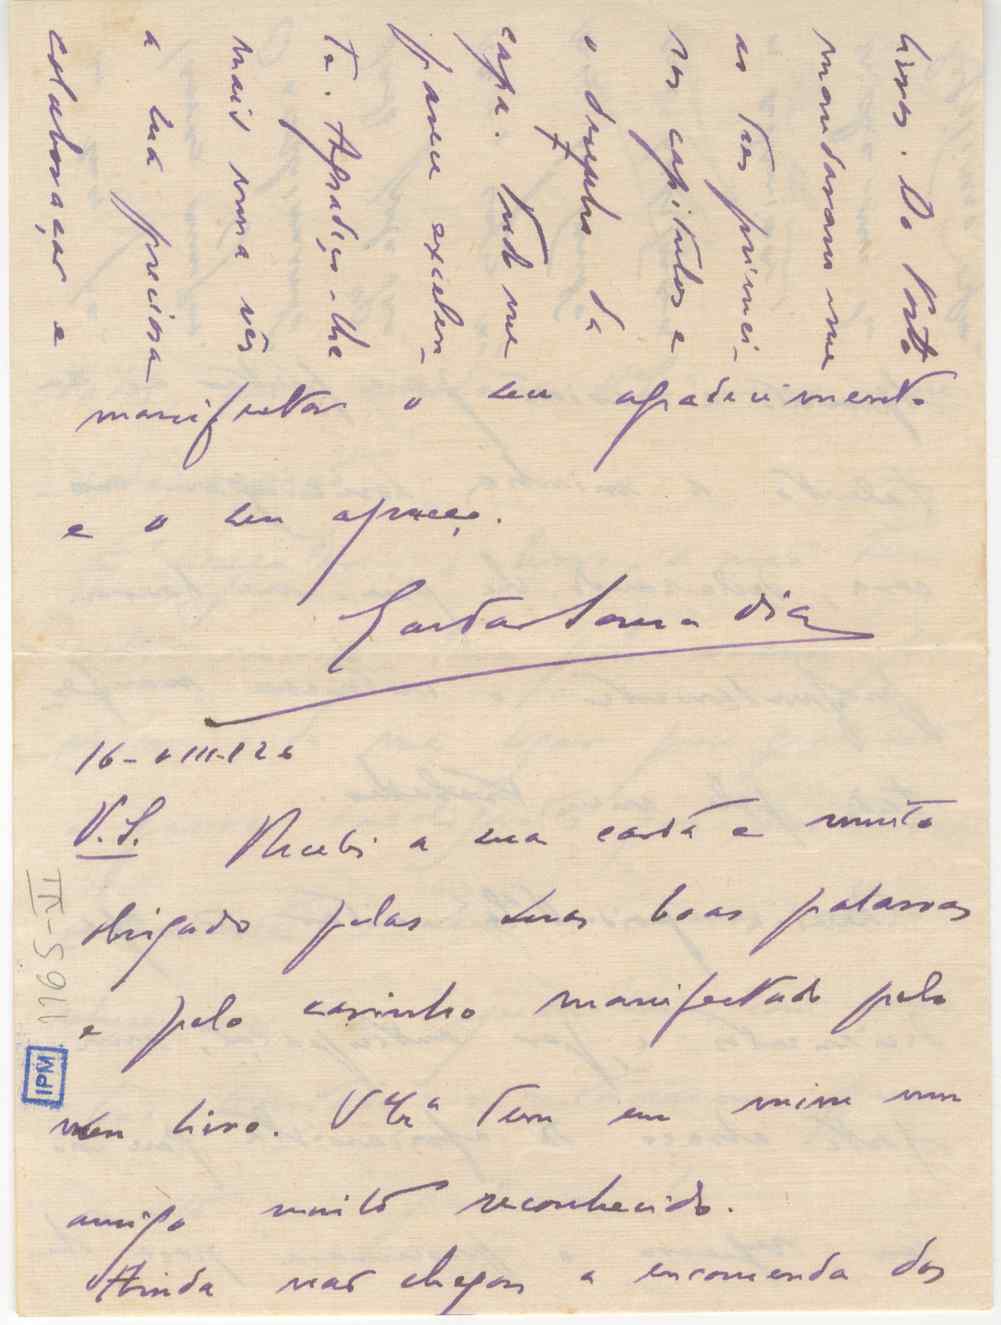 manifestar o seu agradecimento
e o seu apreço.
Gastão Sousa Dias
16-VIII-926
V.S. Recebi a sua carta e muito
obrigado pelas suas boas palavras
e pelo carinho manifestado pelo
meu livro. V. Exª tem em mim um
amigo muito reconhecido.
Ainda não chegou a encomenda dos
livros. Do Porto
mandaram-me
os tres primei-
ros capitulos e
o desenho da
capa. Tudo me
parece excelen-
te. Agradeço-lhe
mais uma vês
a sua preciosa
colaboração e
IPM